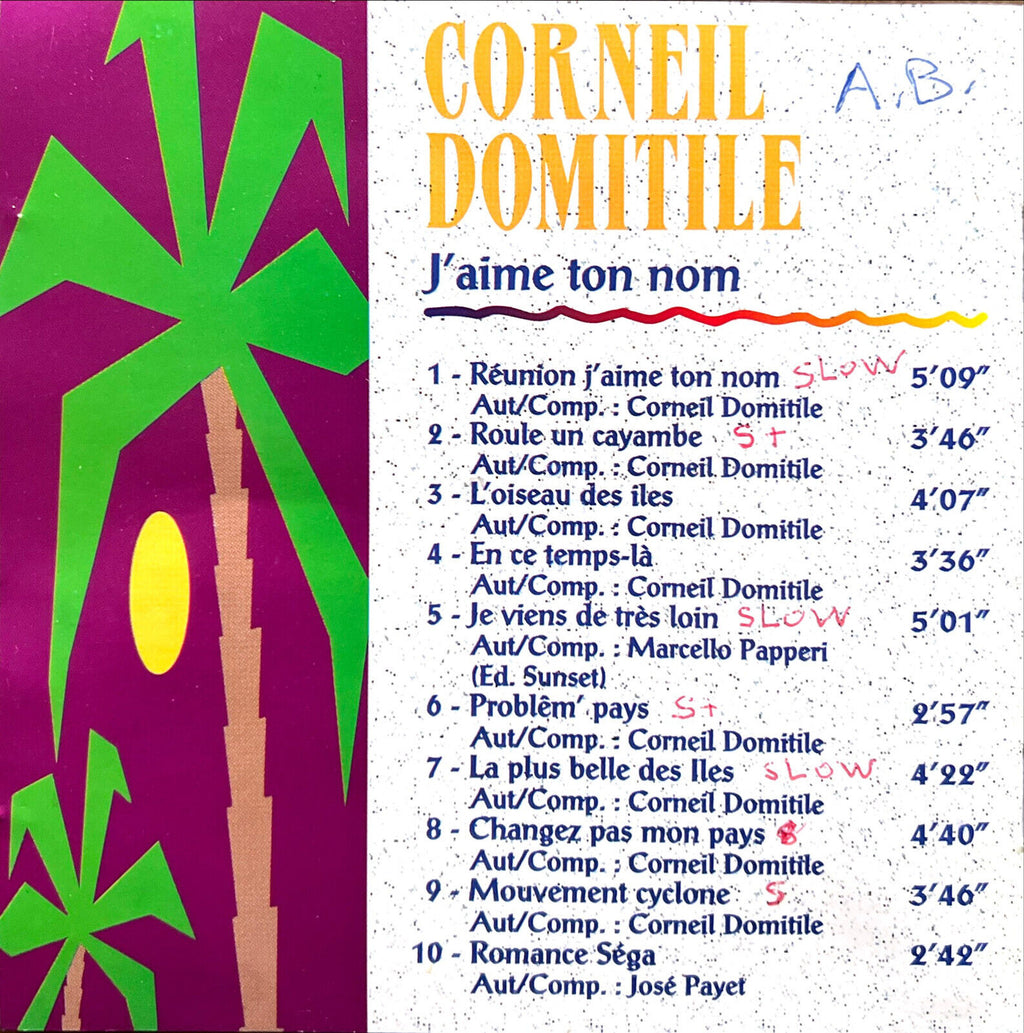 CORNEIL
A.B.
DOMITILE
J'aime ton nom
1 - Réunion j'aime ton nom SLOW 5'09"
Aut/Comp. : Corneil Domitile
2 - Roule un cayambe S+ 3'46"
Aut/Comp. : Corneil Domitile
3 - L'oiseau des îles 4'07"
Aut/Comp. : Corneil Domitile
4 - En ce temps-là 3'36"
Aut/Comp. : Corneil Domitile
5 - Je viens de très loin SLOW 5'01"
Aut/Comp. : Marcello Papperi
(Ed. Sunset)
6 - Problêm' pays S+ 2'57"
Aut/Comp. : Corneil Domitile
7 - La plus belle des Iles SLOW 4'22"
Aut/Comp. : Corneil Domitile
8 - Changez pas mon pays 4'40"
Aut/Comp. : Corneil Domitile
9 - Mouvement cyclone S 3'46"
Aut/Comp. : Corneil Domitile
10 - Romance Séga 2'42"
Aut/Comp. : José Payet